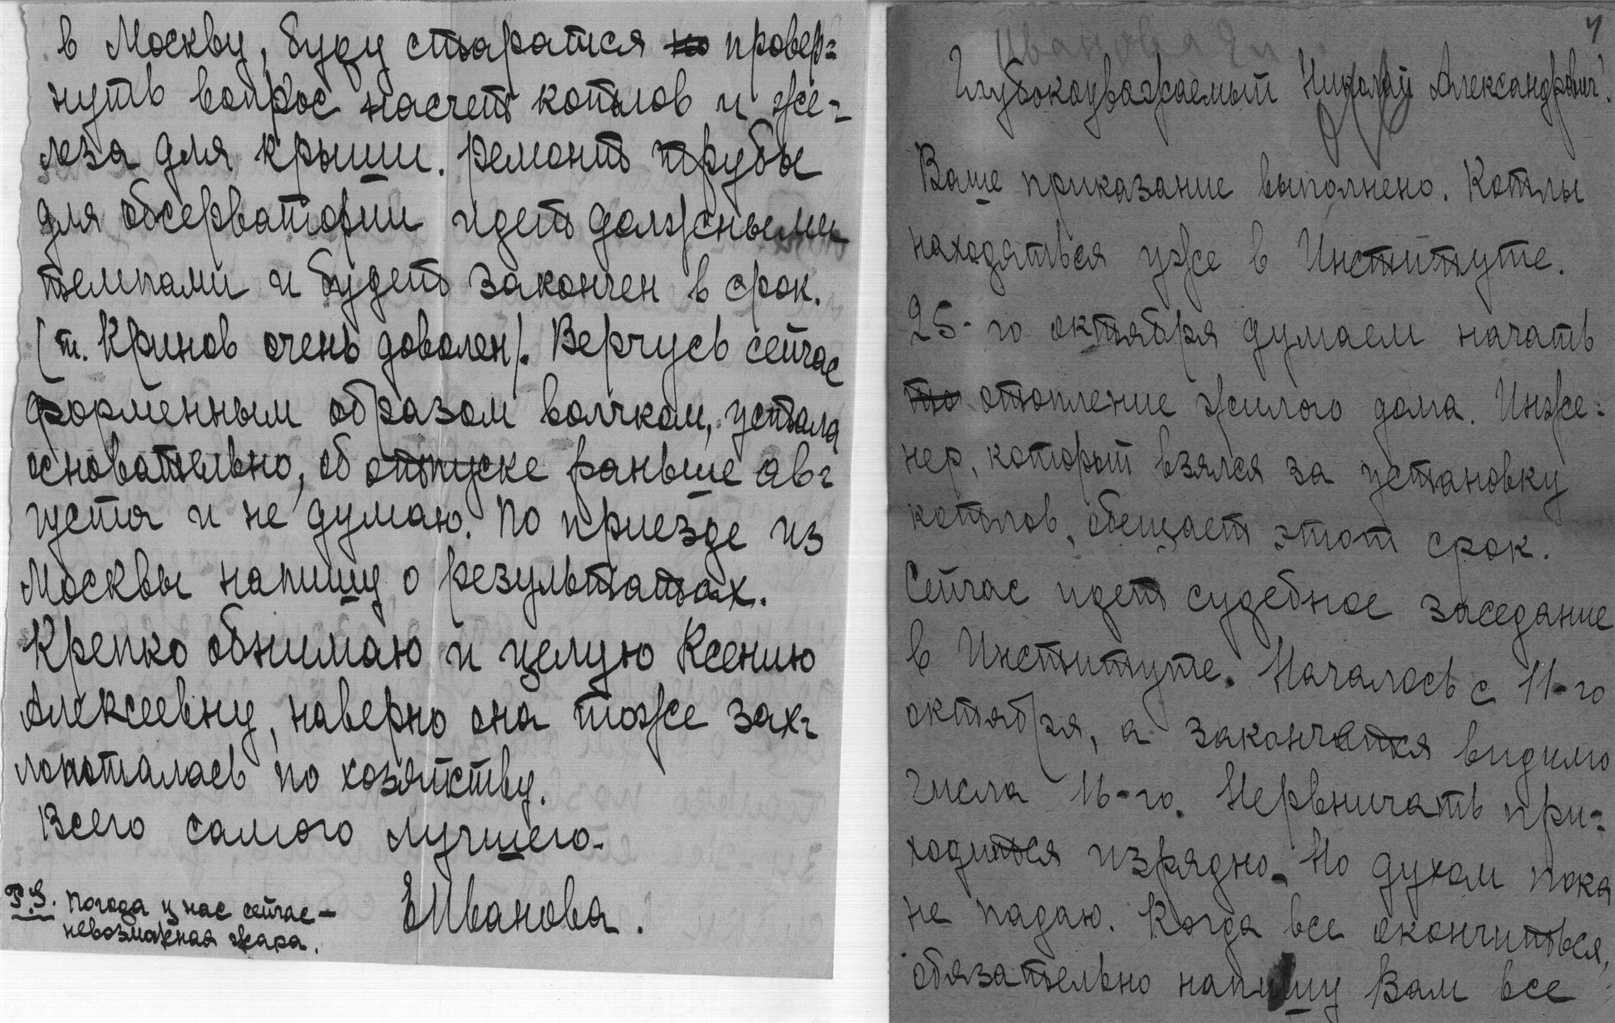 в Москву, буду старатся провер=
нуть вопрос насчет котлов и же=
леза для крыши. ремонт трубы
для обсерватории идет должными
темпами и будет закончен в срок.
(т. Кринов очень доволен). Верчусь сейчас
форменным образом волчком, устала
основательно, об отпуске раньше ав=
густа и не думаю. По приезде из
Москвы напишу о результатах.
Крепко обнимаю и целую Ксению
Алексеевну, наверно она тоже зах=
лопоталась по хозяйству.
Всего самого лучшего.
ЕИванова.
P.S. Погода у нас сейчас –
невозможная жара.
4
Иванова Е.И.
Глубокоуважаемый Николай Александрович!
Ваше приказание выполнено. Котлы
находяться уже в Институте.
25-го октября думаем начать
отопление жилого дома. Инже=
нер, который взялся за установку
котлов, обещает этот срок.
Сейчас идет судебное заседание
в Институте. Началось с 11-го
октября, а закончится видимо
числа 16-го. Нервничать при=
ходится изрядно. Но духом пока
не падаю. Когда все окончиться,
обязательно напишу Вам все